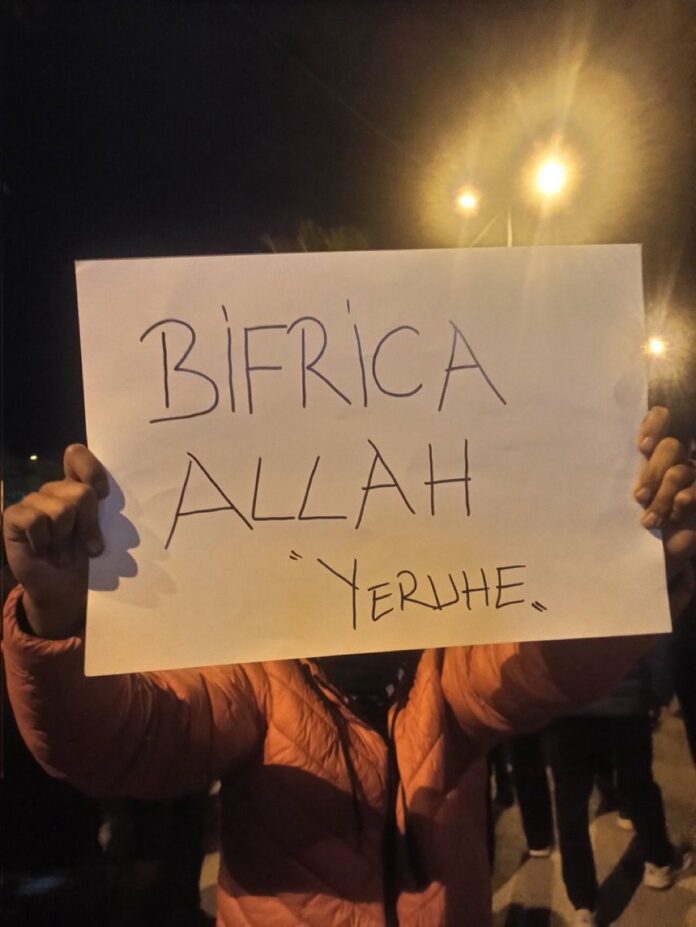 BİFRİCA
ALLAH
"YERUHE"